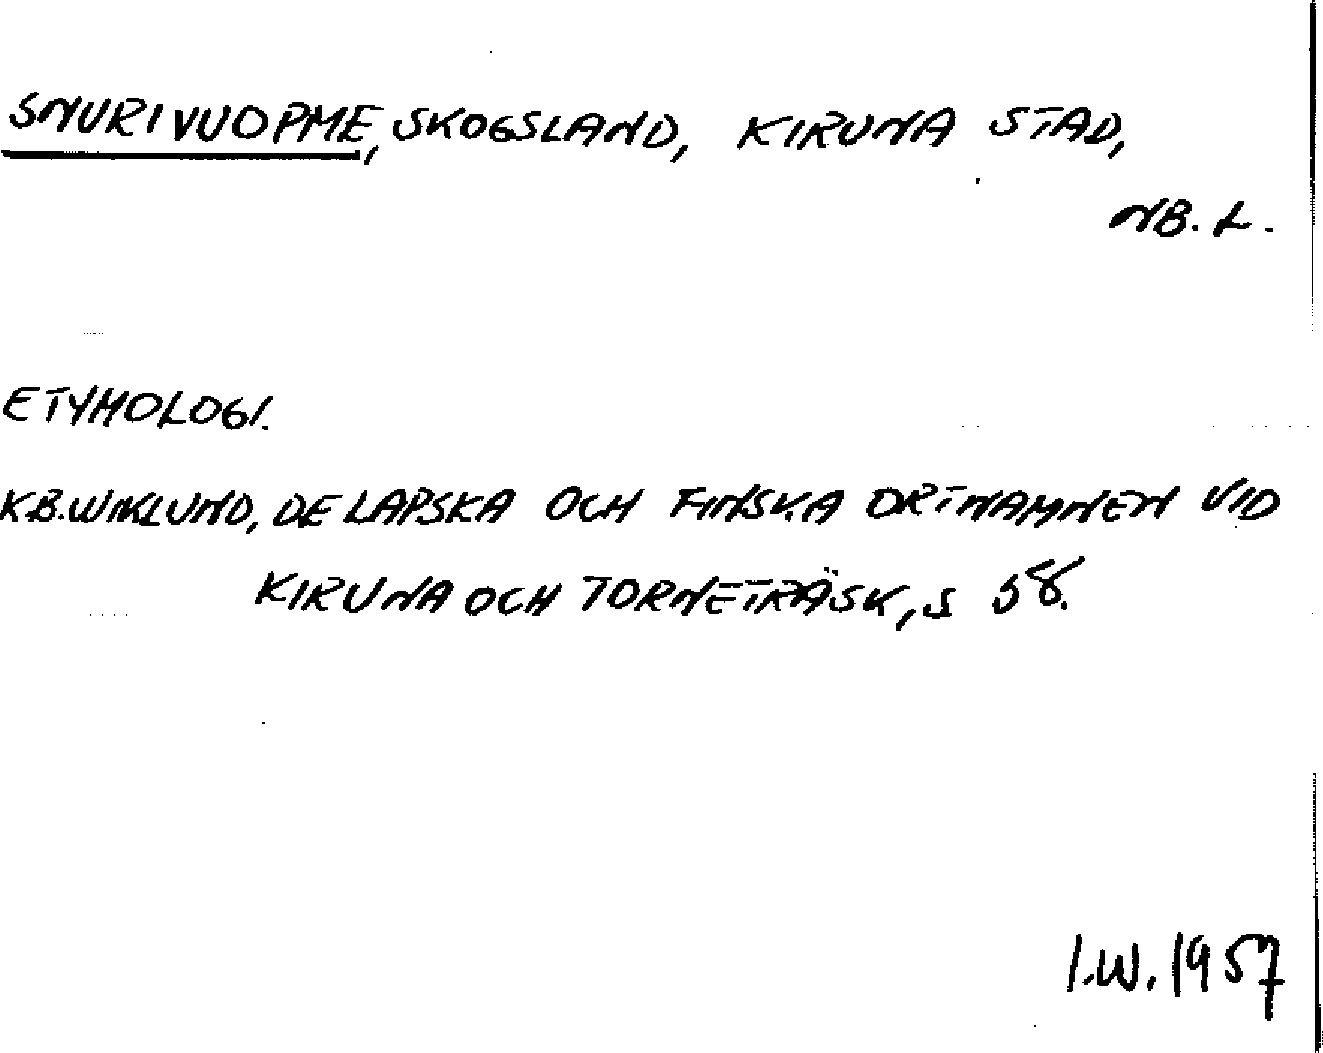 SNURIVUOPME, SKOGSLAND, KIRUNA STAD,
NB.L.
ETYMOLOGI.
K.B.WIKLUND, DE LAPSKA OCH FINSKA ORTNAMNEN VID
KIRUNA OCH TORNETRÄSK, S 58.
I.W. 1957